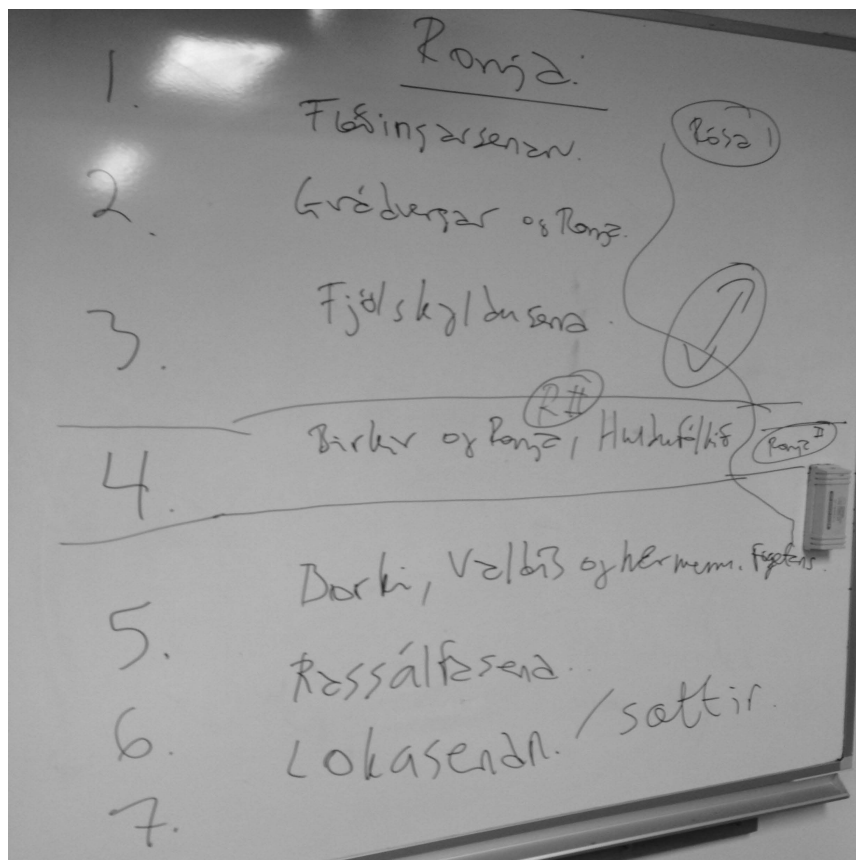 Ronja.
1. Fæðingarsenan.
Rósa I
2. Grádvergar og Ronja.
3. Fjölskyldusena.
R II
4. Birkir og Ronja, Huldufólkið
Ronja II
5. Borki, Valdís og hermenn. Fógetans.
6. Rassálfasena.
7. Lokasenan. / sættir.